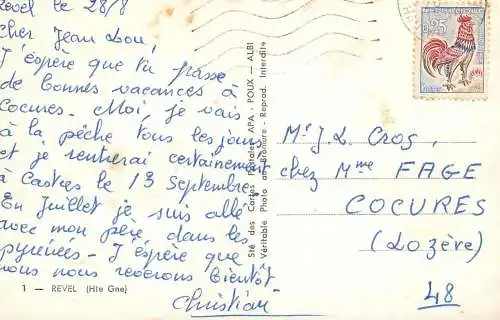 Revel le 28/8
Cher Jean Lou,
J'espère que tu passe
de bonnes vacances à
Cocures. Moi, je vais
à la pêche tous les jours
et je rentrerai certainement
à Castres le 13 Septembre.
En Juillet je suis allé
avec mon père dans les
pyrénées - J'espère que
nous nous reverons bientôt
Christian
1 — REVEL (Hte Gne)
Sté des Cartes Postales APA - POUX - ALBI
Véritable Photo au Bromure - Reprod. Interdite
0,25
Mr J.L. Cros,
chez Mme FAGE
COCURES
(Lozère)
48